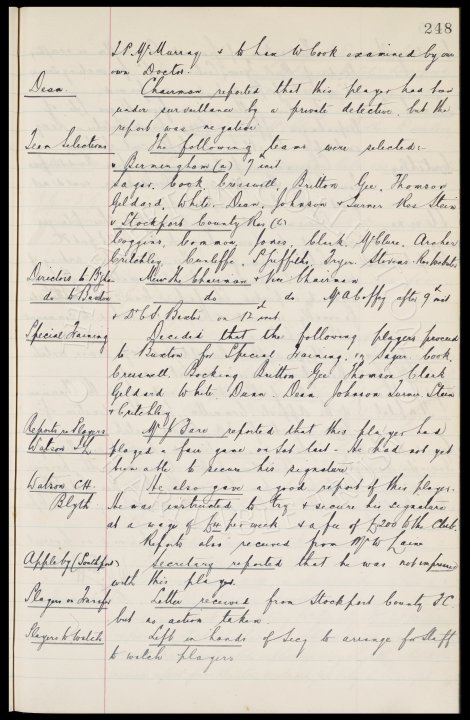 248
J.P. McMurray & to have W Cook examined by our
own Doctor.
Dean. Chairman reported that this player had been
under surveillance by a private detective, but the
report was negative
Team Selections The following teams were selected:-
v Birmingham (a) 7th inst
Sagar, Cook, Cresswell, Britton, Gee, Thomson
Geldard, White, Dean, Johnson & Turner Res Stein
v Stockport County Res (h)
Coggins, Common, Jones, Clark, McClure, Archer
Critchley, Cunliffe, Griffiths, Fryer, Stevens. Res
Directors to B'ham Messrs The Chairman & Vice Chairman
do to Buxton do do Mr A Coffey after 9th inst
& Dr C S Baxter on 12th inst
Special Training Decided that the following players proceed
to Buxton for Special Training, viz Sagar, Cook,
Cresswell, Bocking, Britton, Gee, Thomson, Clark
Geldard, White, Dunn, Dean, Johnson, Turner, Stein
& Critchley
Reports re Players Mr J Sare reported that this player had
Watson played a fair game on Sat last. He had not yet
been able to secure his signature
Watson CH. He also gave a good report of this player.
Blyth He was instructed to try & secure his signature
at a wage of £4 per week & a fee of £200 to the Club.
Reports also received from Mr W
Appleby (Southport) Secretary reported that he was not impressed
with this player.
Players on Transfer Letter received from Stockport County F.C.
but no action taken.
Players to Watch Left in hands of Secy to arrange for Staff
to watch players